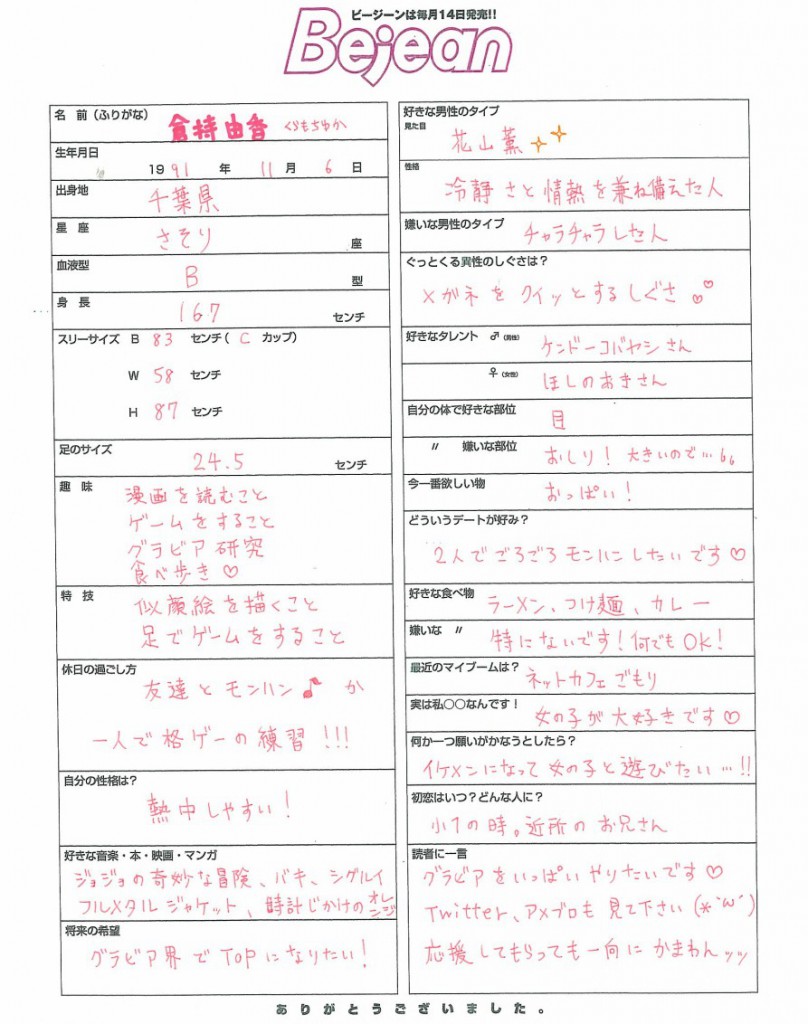 ビージーンは毎月14日発売!!
Bejean
名 前(ふりがな)
倉持由香 くらもちゆか
生年月日
1991年 11月 6日
出身地
千葉県
星 座
さそり座
血液型
B型
身 長
167センチ
スリーサイズ B 83センチ( Cカップ)
W 58センチ
H 87センチ
足のサイズ
24.5センチ
趣 味
漫画を読むこと
ゲームをすること
グラビア研究
食べ歩き♡
特 技
似顔絵を描くこと
足でゲームをすること
休日の過ごし方
友達とモンハン♪か
一人で格ゲーの練習!!!
自分の性格は?
熱中しやすい!
好きな音楽・本・映画・マンガ
ジョジョの奇妙な冒険、バキ、シグルイ
フルメタルジャケット、時計じかけのオレンジ
将来の希望
グラビア界でTopになりたい!
好きな男性のタイプ
見た目
花山薫
性格
冷静さと情熱を兼ね備えた人
嫌いな男性のタイプ
チャラチャラした人
ぐっとくる異性のしぐさは?
メガネをクイッとするしぐさ♡♡
好きなタレント ♂(男性)
ケンドーコバヤシさん
♀(女性)
ほしのあきさん
自分の体で好きな部位
目
〃 嫌いな部位
おしり!大きいので…
今一番欲しい物
おっぱい!
どういうデートが好み?
2人でごろごろモンハンしたいです♡
好きな食べ物
ラーメン、つけ麺、カレー
嫌いな 〃
特にないです!何でもOK!
最近のマイブームは?
ネットカフェごもり
実は私〇〇なんです!
女の子が大好きです♡
何か一つ願いがかなうとしたら?
イケメンになって女の子と遊びたい…!!
初恋はいつ?どんな人に?
小1の時。近所のお兄さん
読者に一言
グラビアをいっぱいやりたいです♡
Twitter、アメブロも見て下さい(*´ω`)
応援してもらっても一向にかまわんッッ
ありがとうございました。